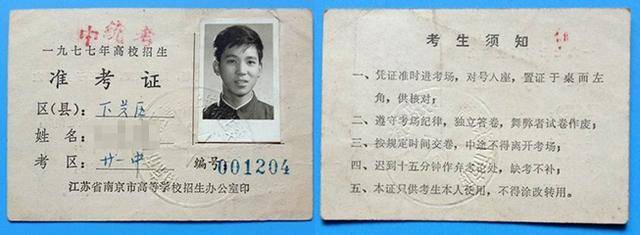 中統考
一九七七年高校招生
准考证
区(县):下关区
姓名:
考区:廿一中
编号 001204
江苏省南京市高等学校招生办公室印
考生须知
一、凭证准时进考场,对号入座,置证于桌面左
角,供核对;
二、遵守考场纪律,独立答卷,舞弊者试卷作废;
三、按规定时间交卷,中途不得离开考场;
四、迟到十五分钟作弃考论处,缺考不补;
五、本证只供考生本人使用,不得涂改转用。